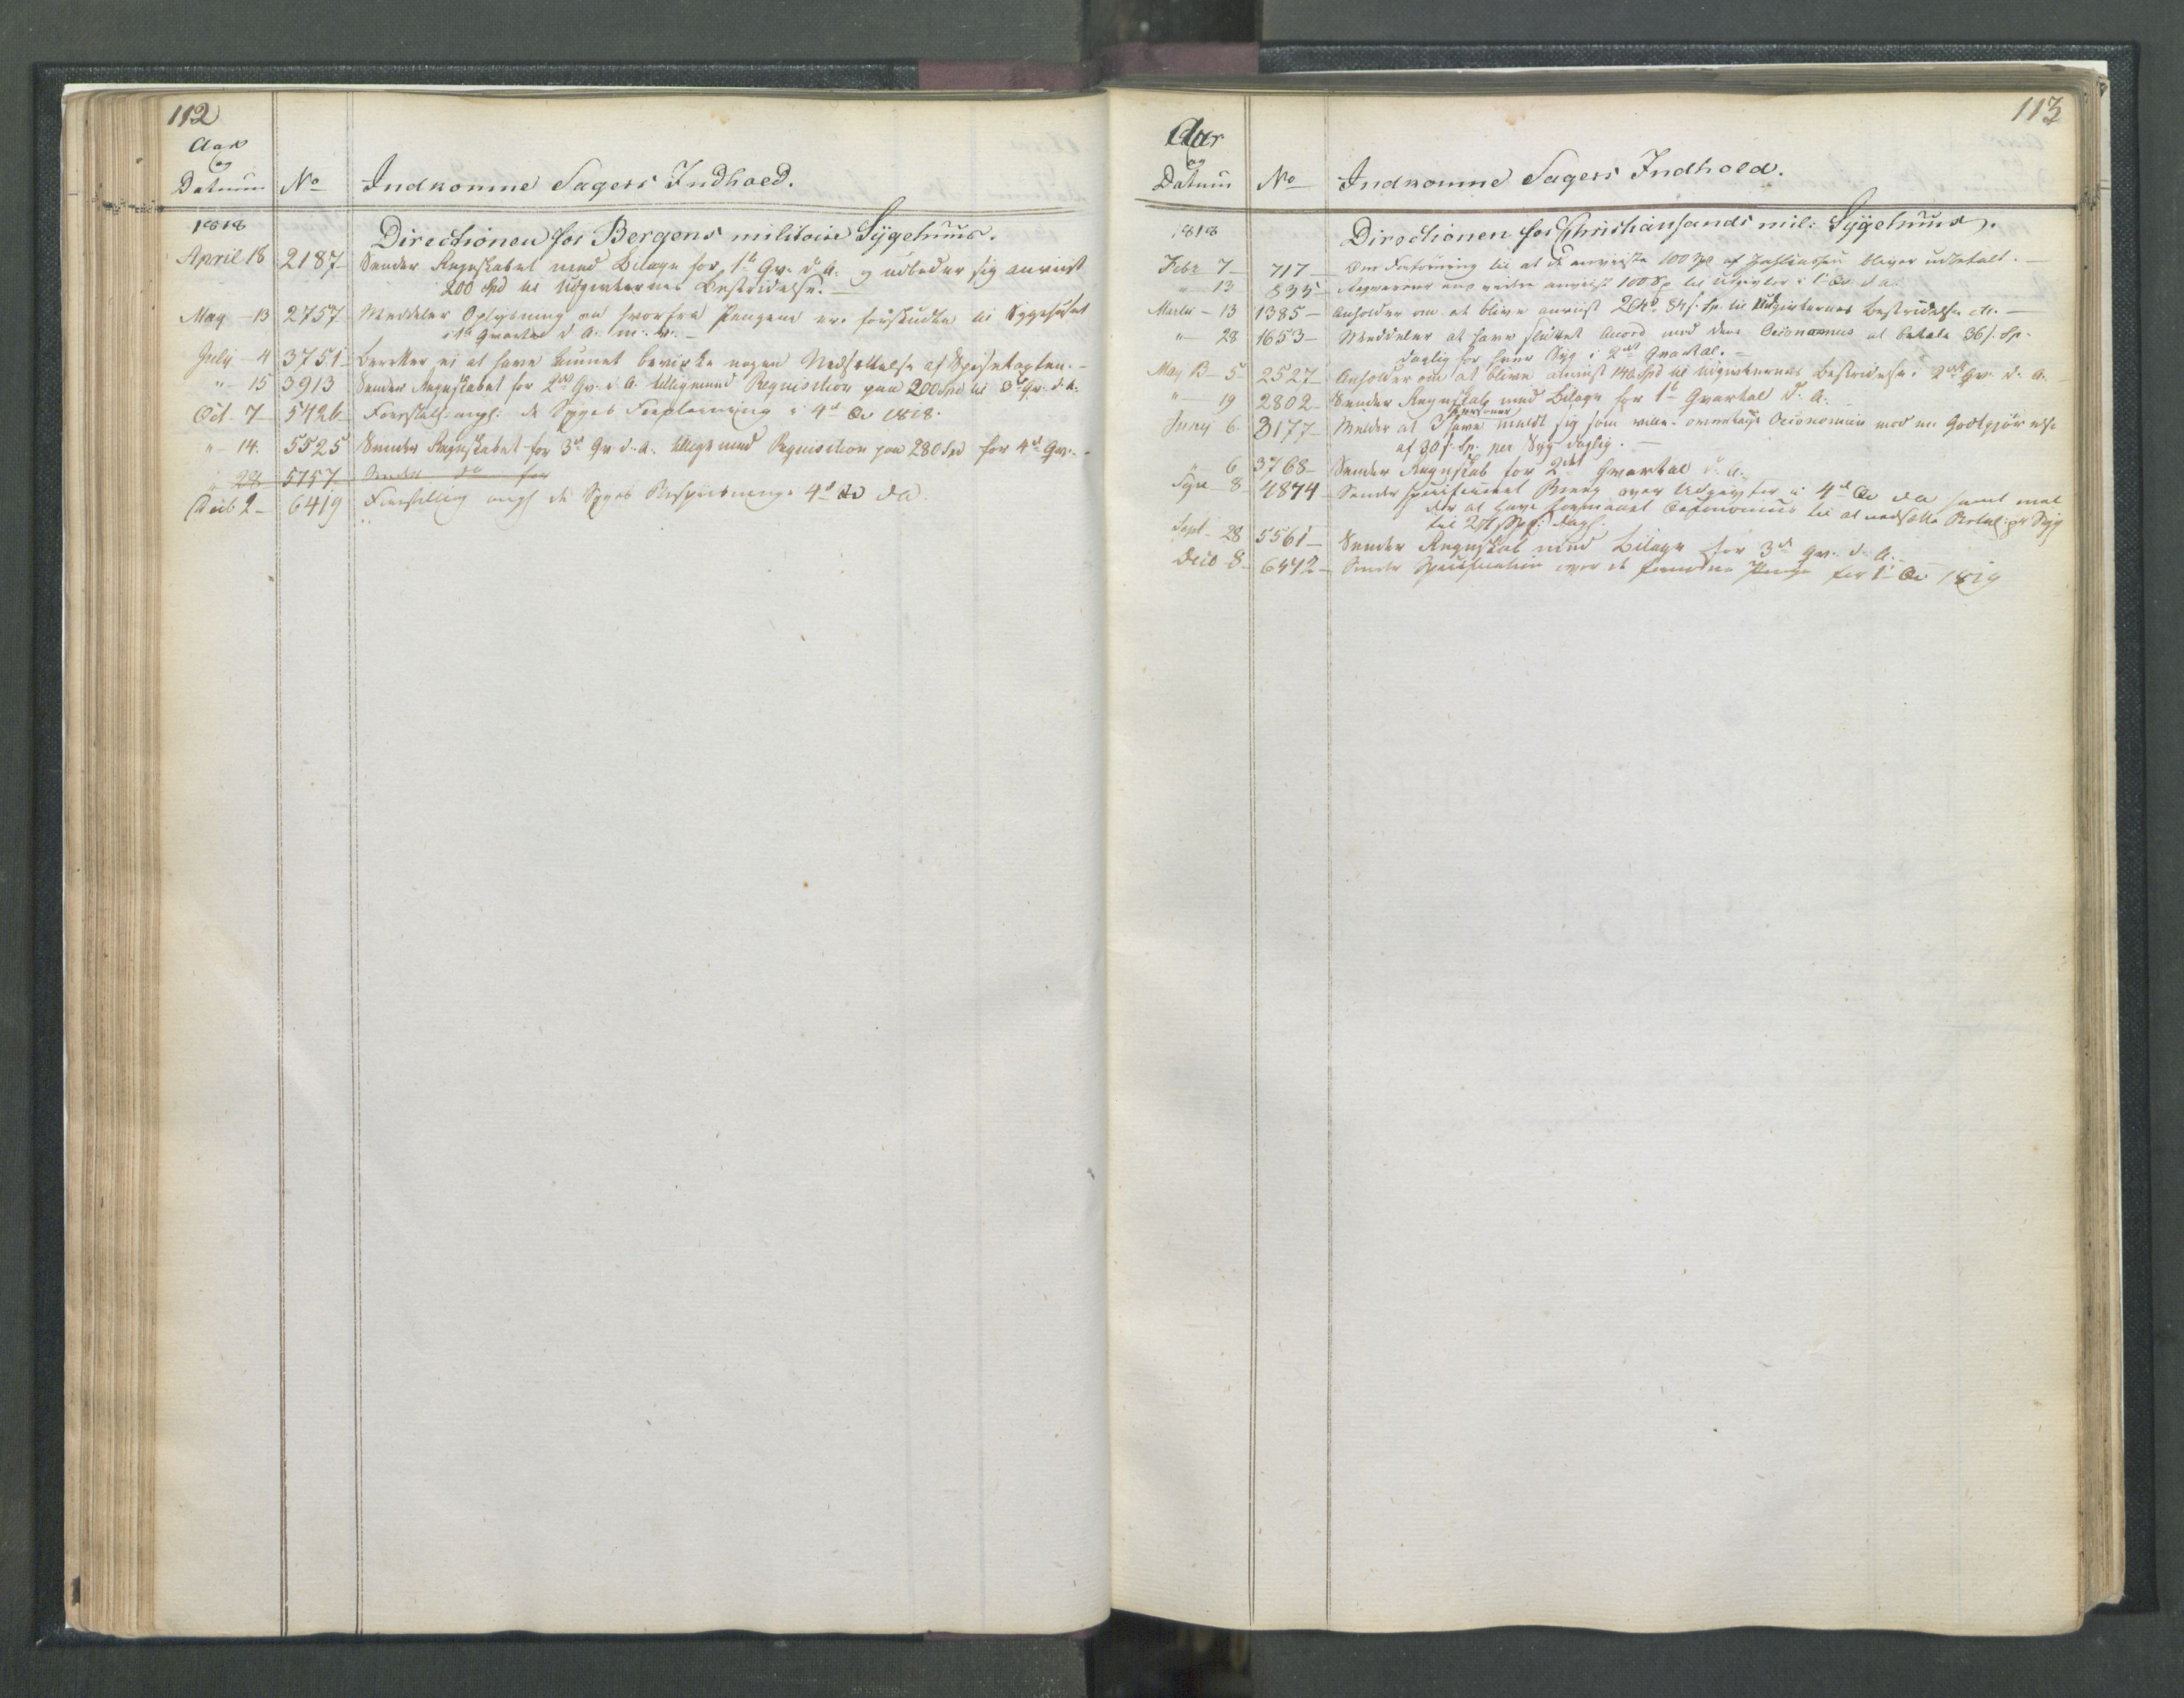 112
Aar
og
Datum No Indkomne Sagers Indhold.
1818 Directionen for Bergens militaire Sygehuus.
April 18 2187 Sender Regnskabet med Bilage for 1te Qv. d. A. og udbeder sig anviist
200 Spd til Udgivternes Bestridelse. —
May 13 2757 Meddeler Oplysning om hvorfra Pengene ere forskudte til Sygehuset
i 1te Qvartal d. A. m. v. —
July 4 3751 Beretter ei at have kunnet bevirke nogen Nedsættelse af Spisetaxten. —
" 15 3913 Sender Regnskabet for 2det Qv. d. A. tilligemed Requisition paa 200 Spd til 3die Qv. d. A.
Oct 7 5426 Forestill. angl. de Syges Forplejning i 4de Qv 1818.
" 14. 5525 Sender Regnskabet for 3die Qv. d. A. tilligemed Requisition paa 280 Spd for 4de Qv. —
" 28 5757 Sender do for
Decb 2 6419 Forestilling angl de Syges Bespiisning i 4de Qv d A.
113
Aar
og
Datum No Indkomne Sagers Indhold.
1818 Directionen for Christiansands mil: Sygehuus.
Febr 7 717 Om at de anviiste 100 Spd af bliver udbetalt. —
" 13 835 anviist 100 Sp til Udgivter i 1te Qv. d. A.
Marts 13 1385 Anholder om at blive anviist 264 Sp. 84 s. til Udgivternes Bestridelse etc. —
" 28 1653 Meddeler at have sluttet Accord med dens Oeconomus at betale 36 s. Sp.
daglig for hver Syg i 2det Qvartal. —
May 5 2527 Anholder om at blive anviist 146 Spd til Udgivternes Bestridelse i 2det Qv. d. A. —
" 19 2802 Sender Regnskab med Bilage for 1te Qvartal d. A. —
Juny 6 3177 Melder at 3 Personer have meldt sig som ville overtage Oeconomien mod en Godtgjørelse
af 30 s. Sp. per Syg daglig. —
" 6 3768 Sender Regnskab for 2det Qvartal d. A.
8 4874 Sender specificeret over Udgivter i 4de Qv d A samt mel
der at have formaaet Oeconomus til at nedsætte Betal: pr Syg
til dagl.
Sept 28 5561 Sender Regnskab med Bilage for 3die Qv. d. A.
Decb 8 6472 Sender Specification over de fornødne Penge for 1te Qv 1819